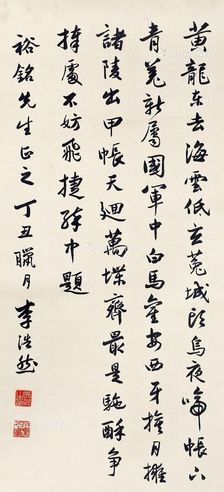 黄龍东去海雲低玄菟城頭烏夜啼帳下
青羌新屬國軍中白馬舊安西牙旗月擁
諸陵出甲帳天迴萬堞齊最是駞酥争
捧處不妨飛捷淬中題
裕銘先生正之丁丑臘月李浩然